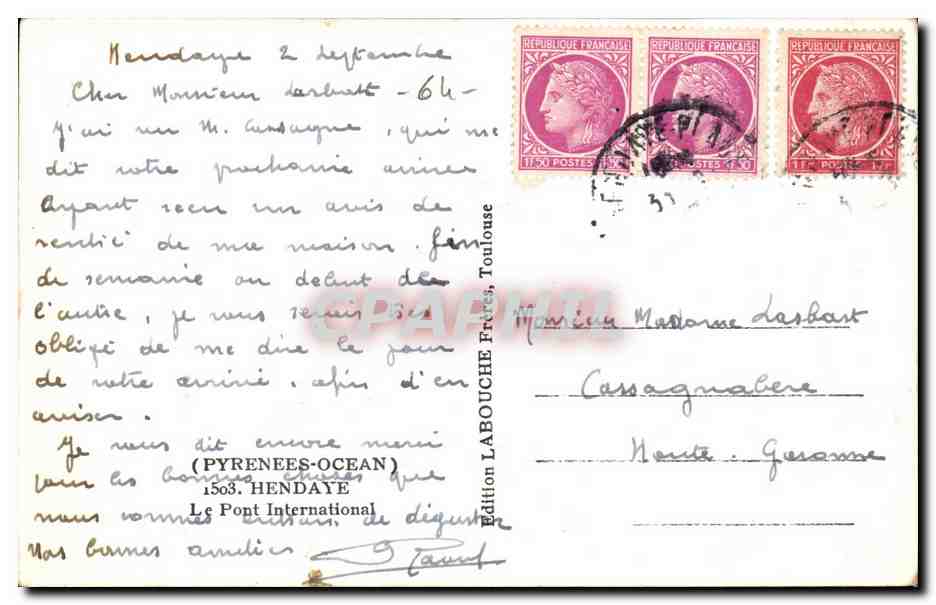 Hendaye 2 Septembre
Cher Monsieur Lasbatt - 64 -
J'ai vu M. Cassagne, qui me
dit votre prochaine arrivée
Ayant recu un avis de
de ma maison. fin
de semaine ou debut de
l'autre, je vous serais très
obligé de me dire le jour
de votre arrivée, afin d'en
aviser.
Je vous dit encore merci
pour les bonnes choses que
nous sommes de déguster
Nos bonnes amitiés
(PYRENEES-OCEAN)
1503. HENDAYE
Le Pont International
Edition LABOUCHE Frères, Toulouse
REPUBLIQUE FRANÇAISE
1F50 POSTES 1F50
REPUBLIQUE FRANÇAISE
POSTES 1F50
REPUBLIQUE FRANÇAISE
CPAPHIL
Monsieur Madame Lasbart
Cassagnabere
Haute-Garonne